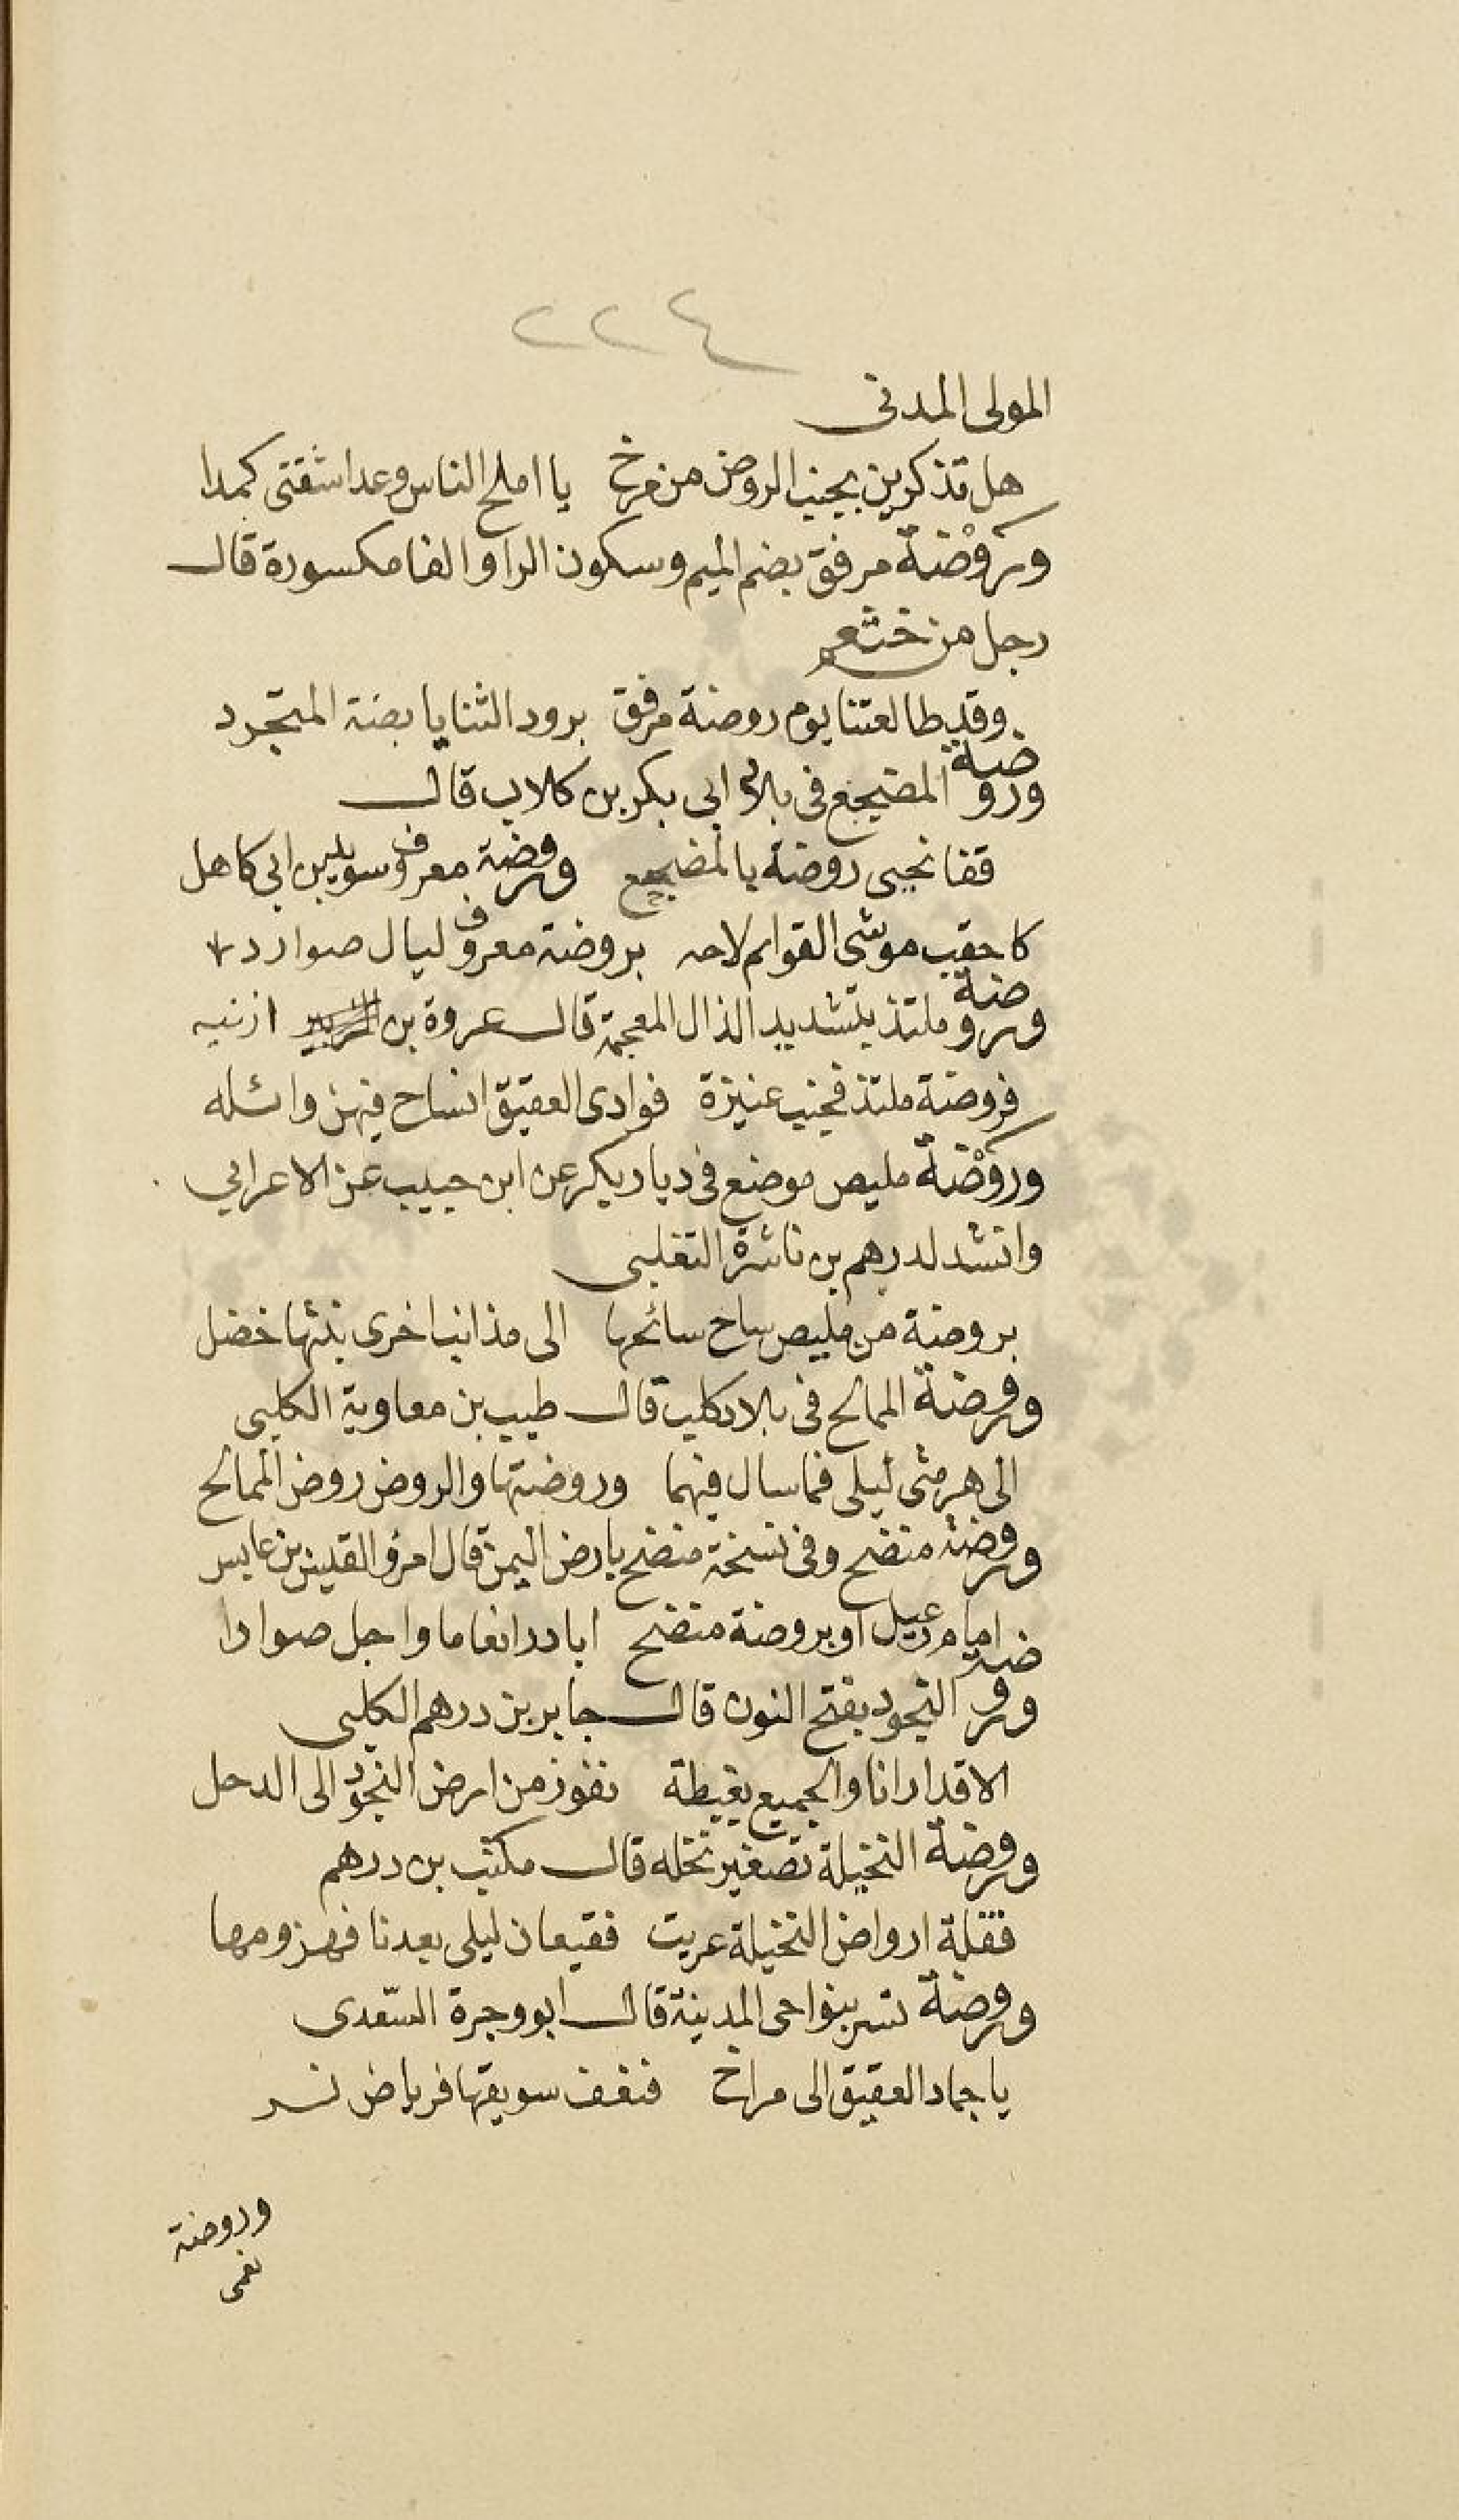 ٢٢٤
المولى المدنى
هل تذكرين بجنب الروض من مرخ يا املح الناس وعدا شقنى كمدا
وروضة مرفق بضم الميم وسكون الرا والفا مكسورة قال
رجل من خثعم
وقد طالعتنا يوم روضة مرفق برود الثنايا بضة المتجرد
وروضة المضيجع فى بلاد ابى بكر بن كلاب قال
قفا نحيى روضة بالمضيجع وروضة معروف سويد بن ابى كاهل
كاحقب موشى القوايم لاحه بروضة معروف ليال صوارد
وروضة ملتذ بتشديد الذال المعجمة قال عروة بن اذنيه
فروضة ملتذ فجنب عنيزة فوادى العقيق انساح فيهن وائله
وروضة مليص موضع فى ديار بكر عن ابن حبيب عن الاعرابي
وانشد لدرهم بن ناشرة التغلبى
بروضة من مليص ساح سائحها الى مذانب اخرى نبتها خضل
وروضة الممالح فى بلاد كليب قال طيب بن معاوية الكلبى
الى هرمتى ليلى فما سال فيهما وروضتها والروض روض الممالح
وروضة منضح وفى نسخة منضح بارض اليمن قال امرؤ القيس بن عابس
امام رعيل او بروضة منضح ابادر انعاما واجل صوارا
وروضة النجود بفتح النون قال جابر بن درهم الكلبى
الا قد ارانا والجميع بغيطة نفوز من ارض النجود الى الدحل
وروضة النخيلة تصغير نخله قال مكتب بن درهم
فقلة ارواض النخيلة عريت فقيعان ليلى بعدنا فهزومها
وروضة نسر بنواحى المدينة قال ابو وجرة السعدى
ياجماد العقيق الى مراخ فنغف سويقها فرياض نسر
وروضة
نعمى